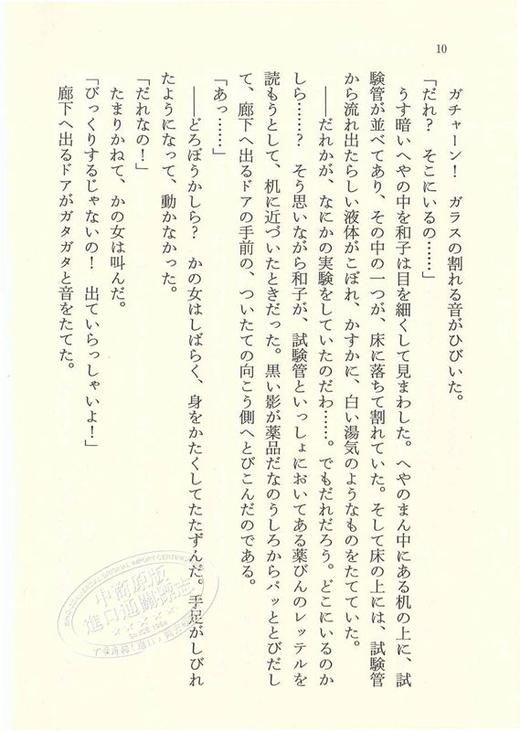 10
ガチャーン！　ガラスの割れる音がひびいた。
「だれ？　そこにいるの……」
うす暗いへやの中を和子は目を細くして見まわした。へやのまん中にある机の上に、試
験管が並べてあり、その中の一つが、床に落ちて割れていた。そして床の上には、試験管
から流れ出たらしい液体がこぼれ、かすかに、白い湯気のようなものをたてていた。
――だれかが、なにかの実験をしていたのだわ……。でもだれだろう。どこにいるのか
しら……？　そう思いながら和子が、試験管といっしょにおいてある薬びんのレッテルを
読もうとして、机に近づいたときだった。黒い影が薬品だなのうしろからパッととびだし
て、廊下へ出るドアの手前の、ついたての向こう側へとびこんだのである。
「あっ……」
――どろぼうかしら？　かの女はしばらく、身をかたくしてたたずんだ。手足がしびれ
たようになって、動かなかった。
「だれなの！」
たまりかねて、かの女は叫んだ。
「びっくりするじゃないの！　出ていらっしゃいよ！」
廊下へ出るドアがガタガタと音をたてた。